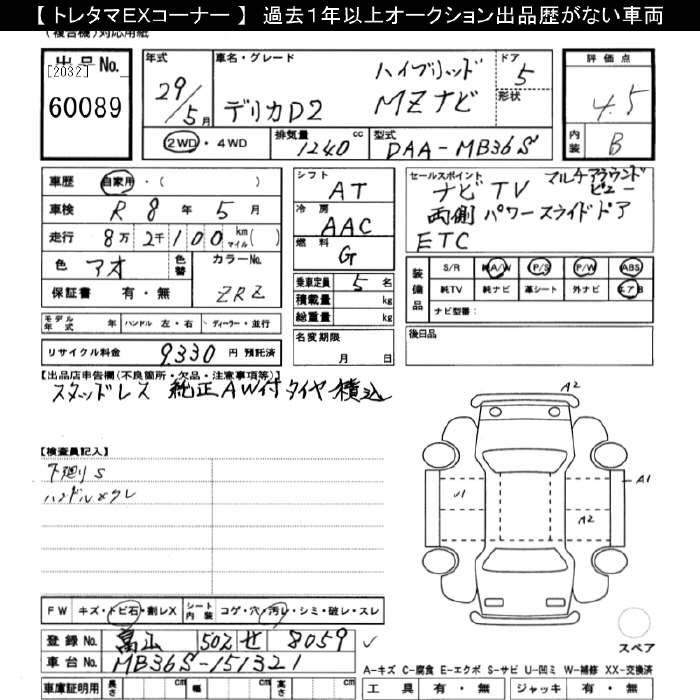 【 トレタマEXコーナー 】 過去1年以上オークション出品歴がない車両
(複合機)対応用紙
出品No.
[2032]
60089
年式
29/5月
車名・グレード
ハイブリッド
デリカD2 MZナビ
ドア
5
形状
評価点
4.5
内装
B
2WD・4WD
排気量 1240 cc
型式 DAA-MB36S
車歴 自家用・( )
車検 R 8年 5月
走行 8万2千100 km マイル( )
色 アオ 色替 カラーNo.
ZRZ
保証書 有・無
シフト
AT
冷房
AAC
燃料
G
乗車定員 5名
積載量 kg
総重量 kg
名変期限
月 日
セールスポイント マルチアラウンドビュー
ナビTV
両側パワースライドドア
ETC
装備品
S/R 純A/W P/S P/W ABS
純TV 純ナビ 革シート 外ナビ エアB
ナビ型番:
後日品
モデル年式 年 ハンドル 左・右 ディーラー・並行
リサイクル料金 9330 円 預託済
【出品店申告欄(不良箇所・欠品・注意事項等)】
スタッドレス 純正AW付タイヤ積込
【検査員記入】
下廻りS
ハンドルメクレ
A2
A1
U1
A2
FW キズ・トビ石・割レX シート内装 コゲ・穴・汚レ・シミ・破レ・スレ
登録No. 富山 502 せ 8059
車台No. MB36S-151321
スペア
A-キズ C-腐食 E-エクボ S-サビ U-凹ミ W-補修 XX-交換済
車庫証明用 長さ cm 幅 cm 高さ cm
工具 有・無 ジャッキ 有・無